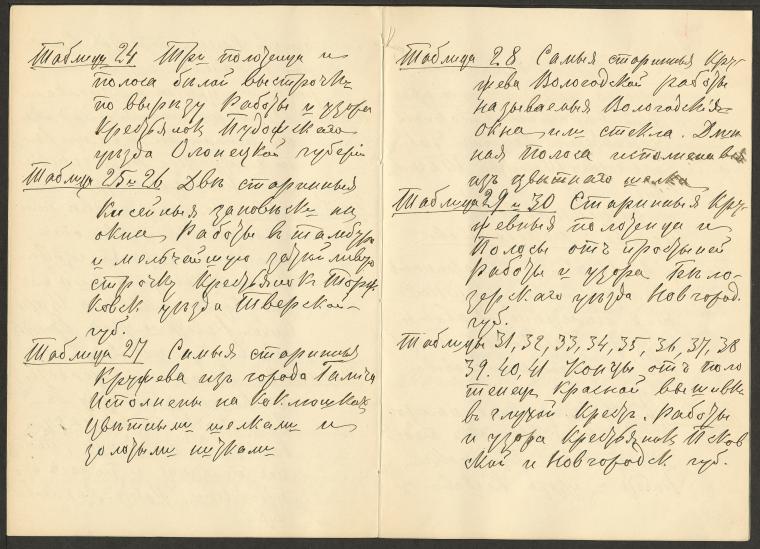 Таблица 24 Три полотенца и
полоса белой выстрочки
по вырѣзу Работы и узора
Крестьянок Пудожскаго
уѣзда Олонецкой губерніи
Таблица 25 и 26 Двѣ старинныя
Кисейныя занавѣски на
окна, Работы в тамбур
и мельчайшую
строчку Крестьянокъ Торж
ковск уѣзда Тверской
губ.
Таблица 27 Самыя старинныя
Кружева изъ города Галича
Исполнены на Коклюшкахъ
цвѣтными шелками и
золотыми нитками
Таблица 28 Самыя старинныя Кру-
жева Вологодской работы
называемыя Вологодскія
окна или стекла. Длин
ная полоса исполнена
изъ цвѣтнаго шелка
Таблица 29 и 30 Старинныя Кру-
жевныя полотенца и
Полосы отъ простыней
Работы и узора Бѣло-
зерскаго уѣзда Новгород.
губ.
Таблицы 31, 32, 33, 34, 35, 36, 37, 38
39. 40, 41 Концы отъ поло
тенец Красной вышивки
въ глухой Крестъ. Работы
и узора Крестьянок Псков
ской и Новгородск губ.